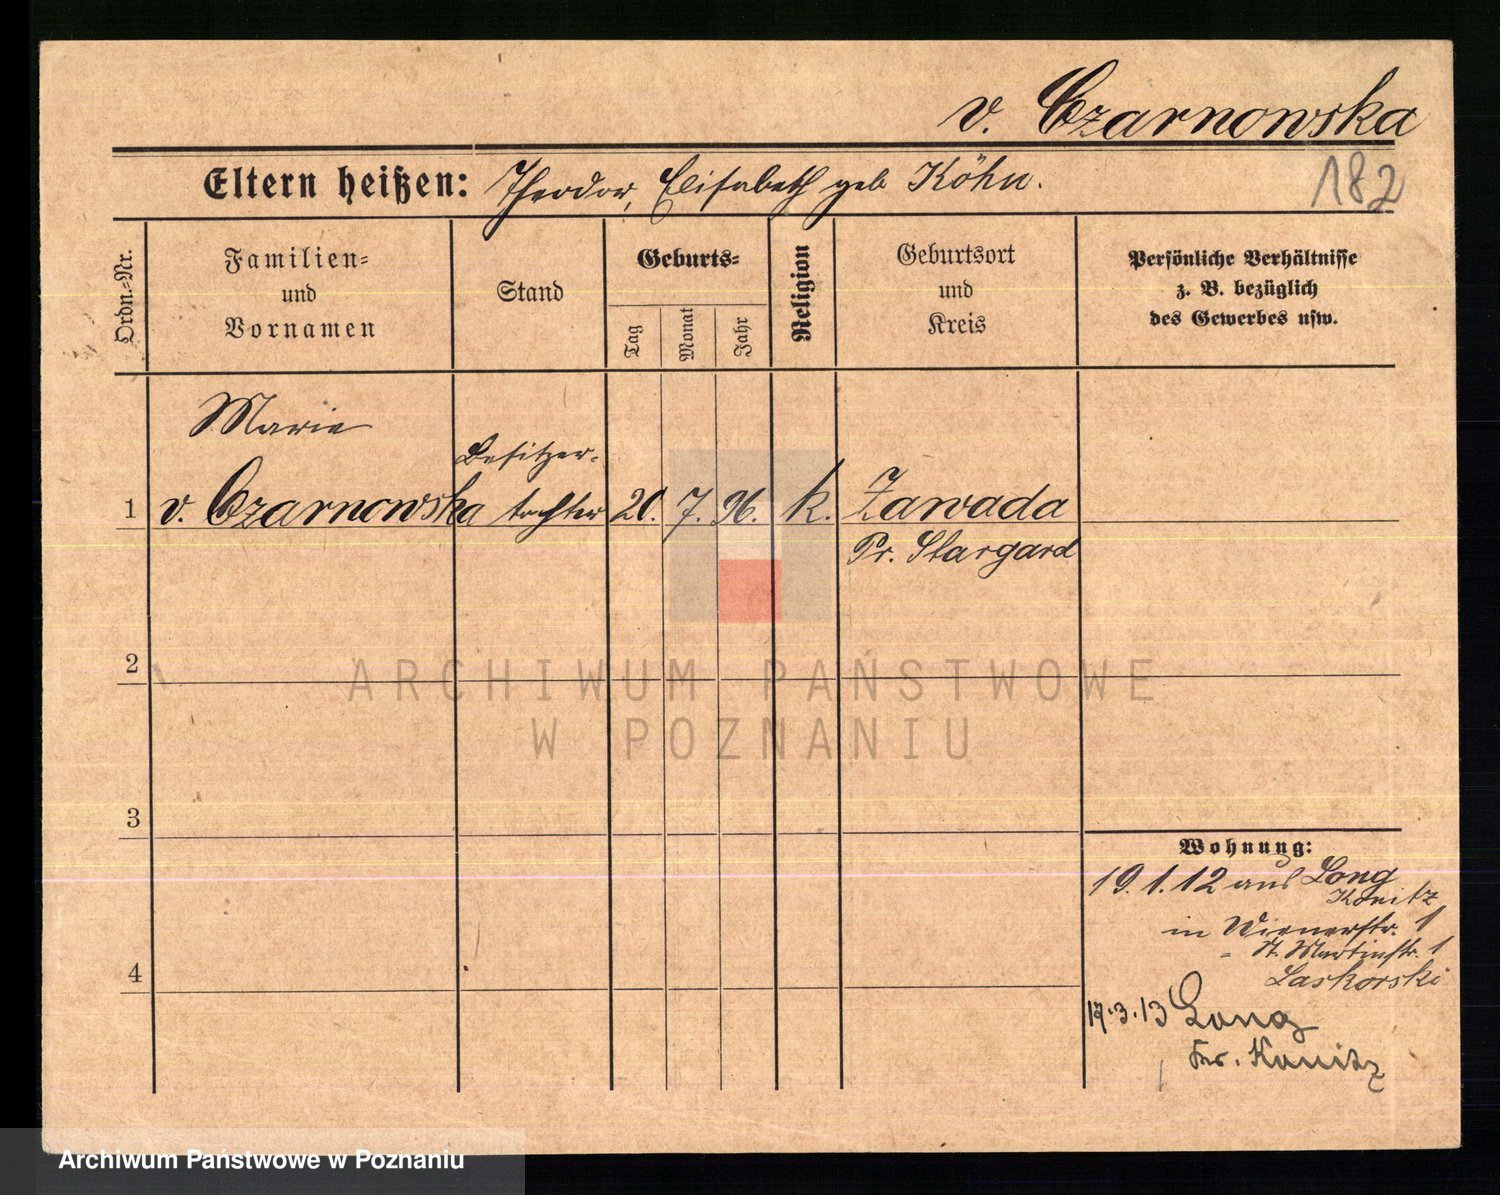 v. Czarnowska
Eltern heißen: Theodor, Elisabeth geb Köhn.
182
Ordn.-Nr.
Familien-
und
Vornamen
Stand
Geburts-
Tag
Monat
Jahr
Religion
Geburtsort
und
Kreis
Persönliche Verhältnisse
z. B. bezüglich
des Gewerbes usw.
Marie
Besitzer-
1 v. Czarnowska tochter 20. 7. 96. k. Zawada
Pr. Stargard
2
ARCHIWUM PAŃSTWOWE
W POZNANIU
3
Wohnung:
19.1.12 aus Long
Konitz
in Wienerstr. 1
" St. Martinstr. 1
Laskorski
4
17.3.13 Long
Kr. Konitz
Archiwum Państwowe w Poznaniu